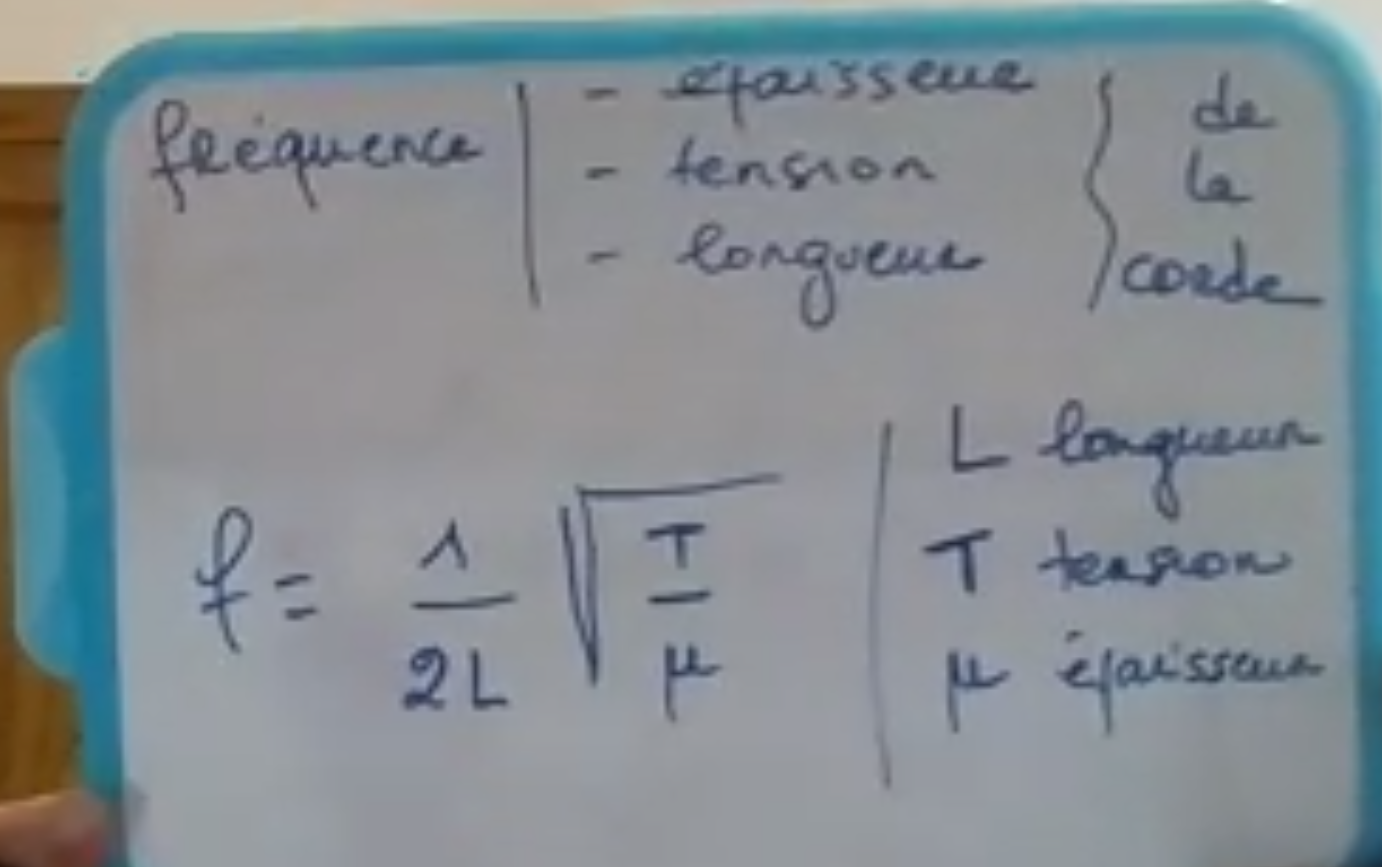 fréquence
- épaisseur
- tension
- longueur
de
la
corde
f = 1/2L √T/μ
L longueur
T tension
μ épaisseur